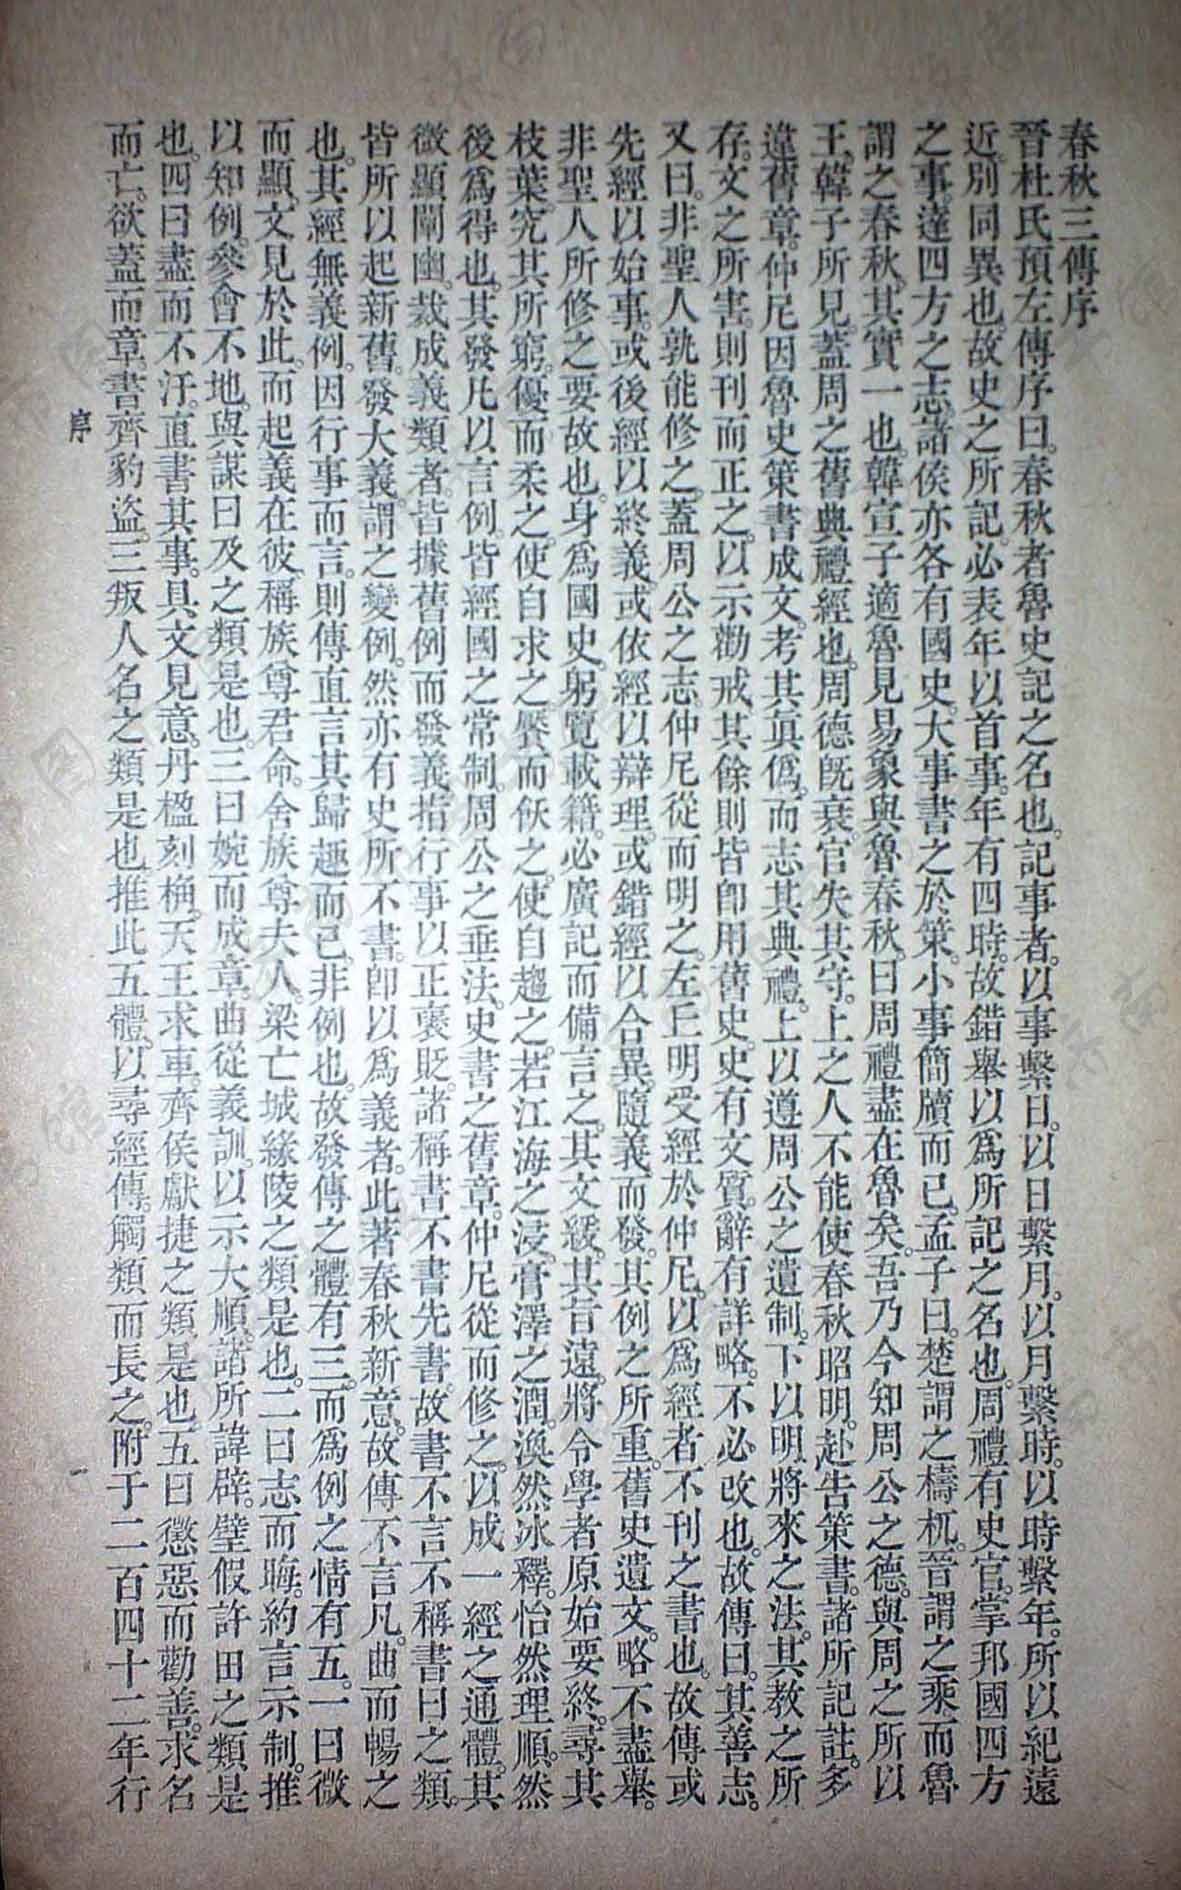 春秋三傳序
晉杜氏預左傳序曰。春秋者魯史記之名也。記事者。以事繫日。以日繫月。以月繫時。以時繫年。所以紀遠
近。別同異也。故史之所記。必表年以首事。年有四時。故錯舉以爲所記之名也。周禮有史官。掌邦國四方
之事。達四方之志。諸侯亦各有國史。大事書之於策。小事簡牘而已。孟子曰。楚謂之檮杌。晉謂之乘。而魯
謂之春秋。其實一也。韓宣子適魯見易象與魯春秋。曰周禮盡在魯矣。吾乃今知周公之德。與周之所以
王。韓子所見。蓋周之舊典禮經也。周德既衰。官失其守。上之人不能使春秋昭明。赴告策書。諸所記註。多
違舊章。仲尼因魯史策書成文。考其眞僞。而志其典禮。上以遵周公之遺制。下以明將來之法。其教之所
存。文之所害。則刊而正之。以示勸戒。其餘則皆即用舊史。史有文質。辭有詳略。不必改也。故傳曰。其善志。
又曰。非聖人孰能修之。蓋周公之志。仲尼從而明之。左丘明受經於仲尼。以爲經者不刊之書也。故傳或
先經以始事。或後經以終義。或依經以辯理。或錯經以合異。隨義而發。其例之所重。舊史遺文。略不盡舉。
非聖人所修之要故也。身爲國史。躬覽載籍。必廣記而備言之。其文緩。其旨遠。將令學者原始要終。尋其
枝葉。究其所窮。優而柔之。使自求之。饜而飫之。使自趨之。若江海之浸。膏澤之潤。渙然冰釋。怡然理順。然
後爲得也。其發凡以言例。皆經國之常制。周公之垂法。史書之舊章。仲尼從而修之。以成一經之通體。其
微顯闡幽。裁成義類者。皆據舊例而發義。指行事以正褒貶。諸稱書不書先書。故書不言不稱書曰之類。
皆所以起新舊。發大義。謂之變例。然亦有史所不書。即以爲義者。此蓋春秋新意。故傳不言凡。曲而暢之
也。其經無義例。因行事而言。則傳直言其歸趣而已。非例也。故發傳之體有三。而爲例之情有五。一曰微
而顯。文見於此。而起義在彼。稱族尊君命。舍族尊夫人。梁亡城緣陵之類是也。二曰志而晦。約言示制。推
以知例。參會不地。與謀曰及之類是也。三曰婉而成章。曲從義訓。以示大順。諸所諱辟。璧假許田之類是
也。四曰盡而不汙。直書其事。具文見意。丹楹刻桷。天王求車。齊侯獻捷之類是也。五曰懲惡而勸善。求名
而亡。欲蓋而章。書齊豹盜。三叛人名之類是也。推此五體。以尋經傳。觸類而長之。附于二百四十二年行
序
一